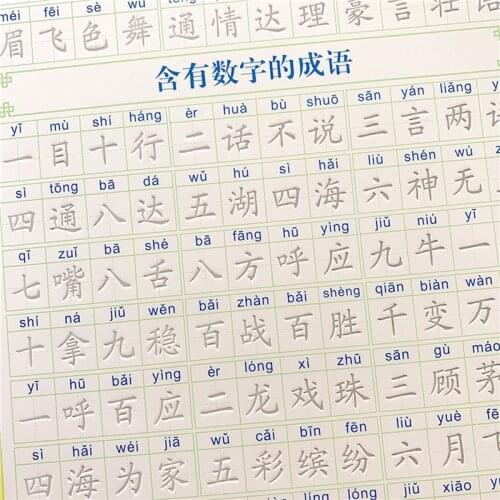 méi fēi sè wǔ tōng qíng dá lǐ háo yán zhuàng
眉飞色舞 通情达理 豪言壮语
含有数字的成语
yī mù shí háng èr huà bù shuō sān yán liǎng y
一目十行 二话不说 三言两语
sì tōng bā dá wǔ hú sì hǎi liù shén wú z
四通八达 五湖四海 六神无
qī zuǐ bā shé bā fāng hū yìng jiǔ niú yī
七嘴八舌 八方呼应 九牛一
shí ná jiǔ wěn bǎi zhàn bǎi shèng qiān biàn wàn
十拿九稳 百战百胜 千变万
yī hū bǎi yìng èr lóng xì zhū sān gù máo
一呼百应 二龙戏珠 三顾茅
sì hǎi wéi jiā wǔ cǎi bīn fēn liù yuè fē
四海为家 五彩缤纷 六月飞
jiǔ xiāo